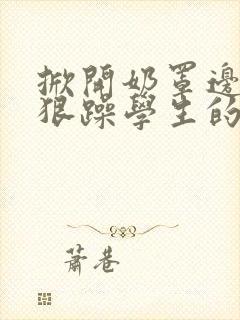 掀開奶罩邊
狠躁學生的
蕭巷